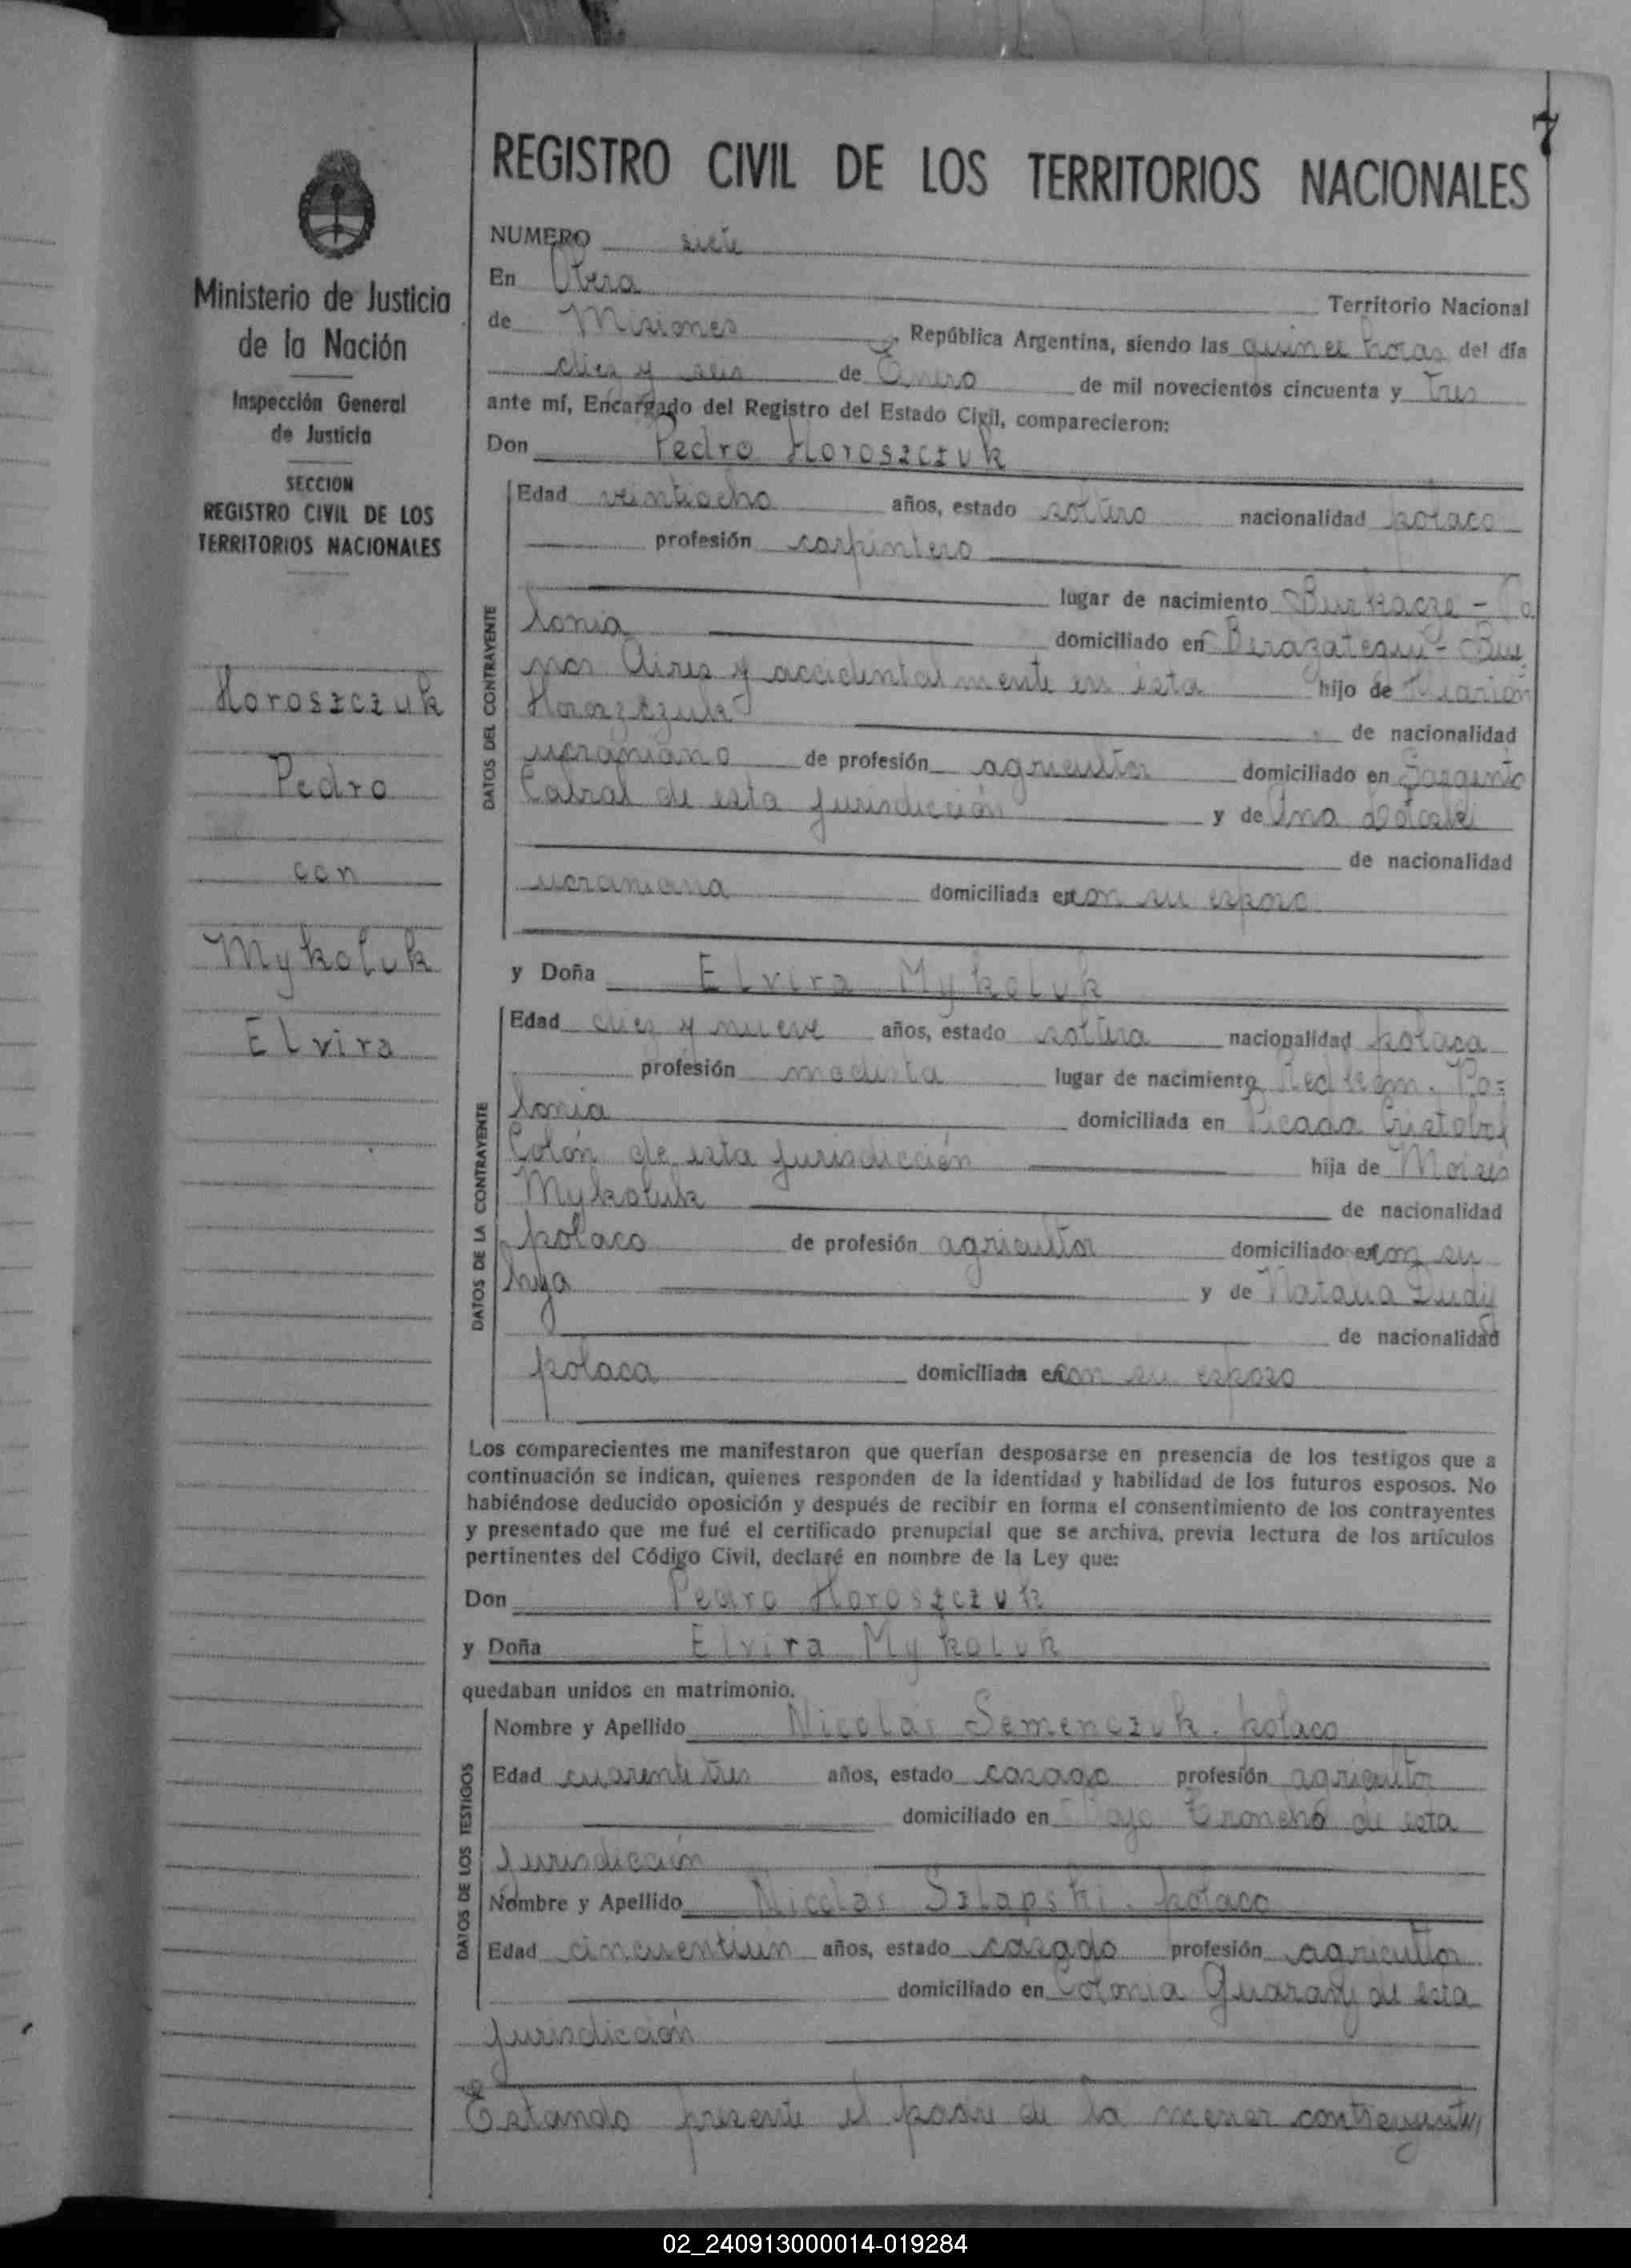 7
REGISTRO CIVIL DE LOS TERRITORIOS NACIONALES
Ministerio de Justicia
de la Nación
Inspección General
de Justicia
SECCION
REGISTRO CIVIL DE LOS
TERRITORIOS NACIONALES
Horoszczuk
Pedro
con
Mykoluk
Elvira
NUMERO siete
En Oberá Territorio Nacional
de Misiones, República Argentina, siendo las quince horas del día
diez y seis de Enero de mil novecientos cincuenta y tres
ante mí, Encargado del Registro del Estado Civil, comparecieron:
Don Pedro Horoszczuk
DATOS DEL CONTRAYENTE
Edad veintiocho años, estado soltero nacionalidad polaco
profesión carpintero
lugar de nacimiento - Po
lonia domiciliado en Berazategui - Bue
nos Aires y accidentalmente en esta hijo de Marión
de nacionalidad
ucraniano de profesión agricultor domiciliado en Sargento
Cabral de esta jurisdicción y de Ana
de nacionalidad
ucraniana domiciliada en con su esposo
y Doña Elvira Mykoluk
DATOS DE LA CONTRAYENTE
Edad diez y nueve años, estado soltera nacionalidad polaca
profesión modista lugar de nacimiento Po=
lonia domiciliada en Picada Cristobal
Colón de esta jurisdicción hija de Moisés
Mykoluk de nacionalidad
polaco de profesión agricultor domiciliado en con su
hija y de Natalia Dudij
de nacionalidad
polaca domiciliada en con su esposo
Los comparecientes me manifestaron que querían desposarse en presencia de los testigos que a
continuación se indican, quienes responden de la identidad y habilidad de los futuros esposos. No
habiéndose deducido oposición y después de recibir en forma el consentimiento de los contrayentes
y presentado que me fué el certificado prenupcial que se archiva, previa lectura de los artículos
pertinentes del Código Civil, declaré en nombre de la Ley que:
Don Pedro Horoszczuk
y Doña Elvira Mykoluk
quedaban unidos en matrimonio.
DATOS DE LOS TESTIGOS
Nombre y Apellido Nicolás Semenczuk. polaco
Edad cuarentitres años, estado casado profesión agricultor
domiciliado en Bajo Tronchó de esta
jurisdicción
Nombre y Apellido Nicolás Szlapski. polaco
Edad cincuentiun años, estado casado profesión agricultor
domiciliado en Colonia Guarany de esta
jurisdicción
Estando presente el padre de la menor contrayente,
02_240913000014-019284